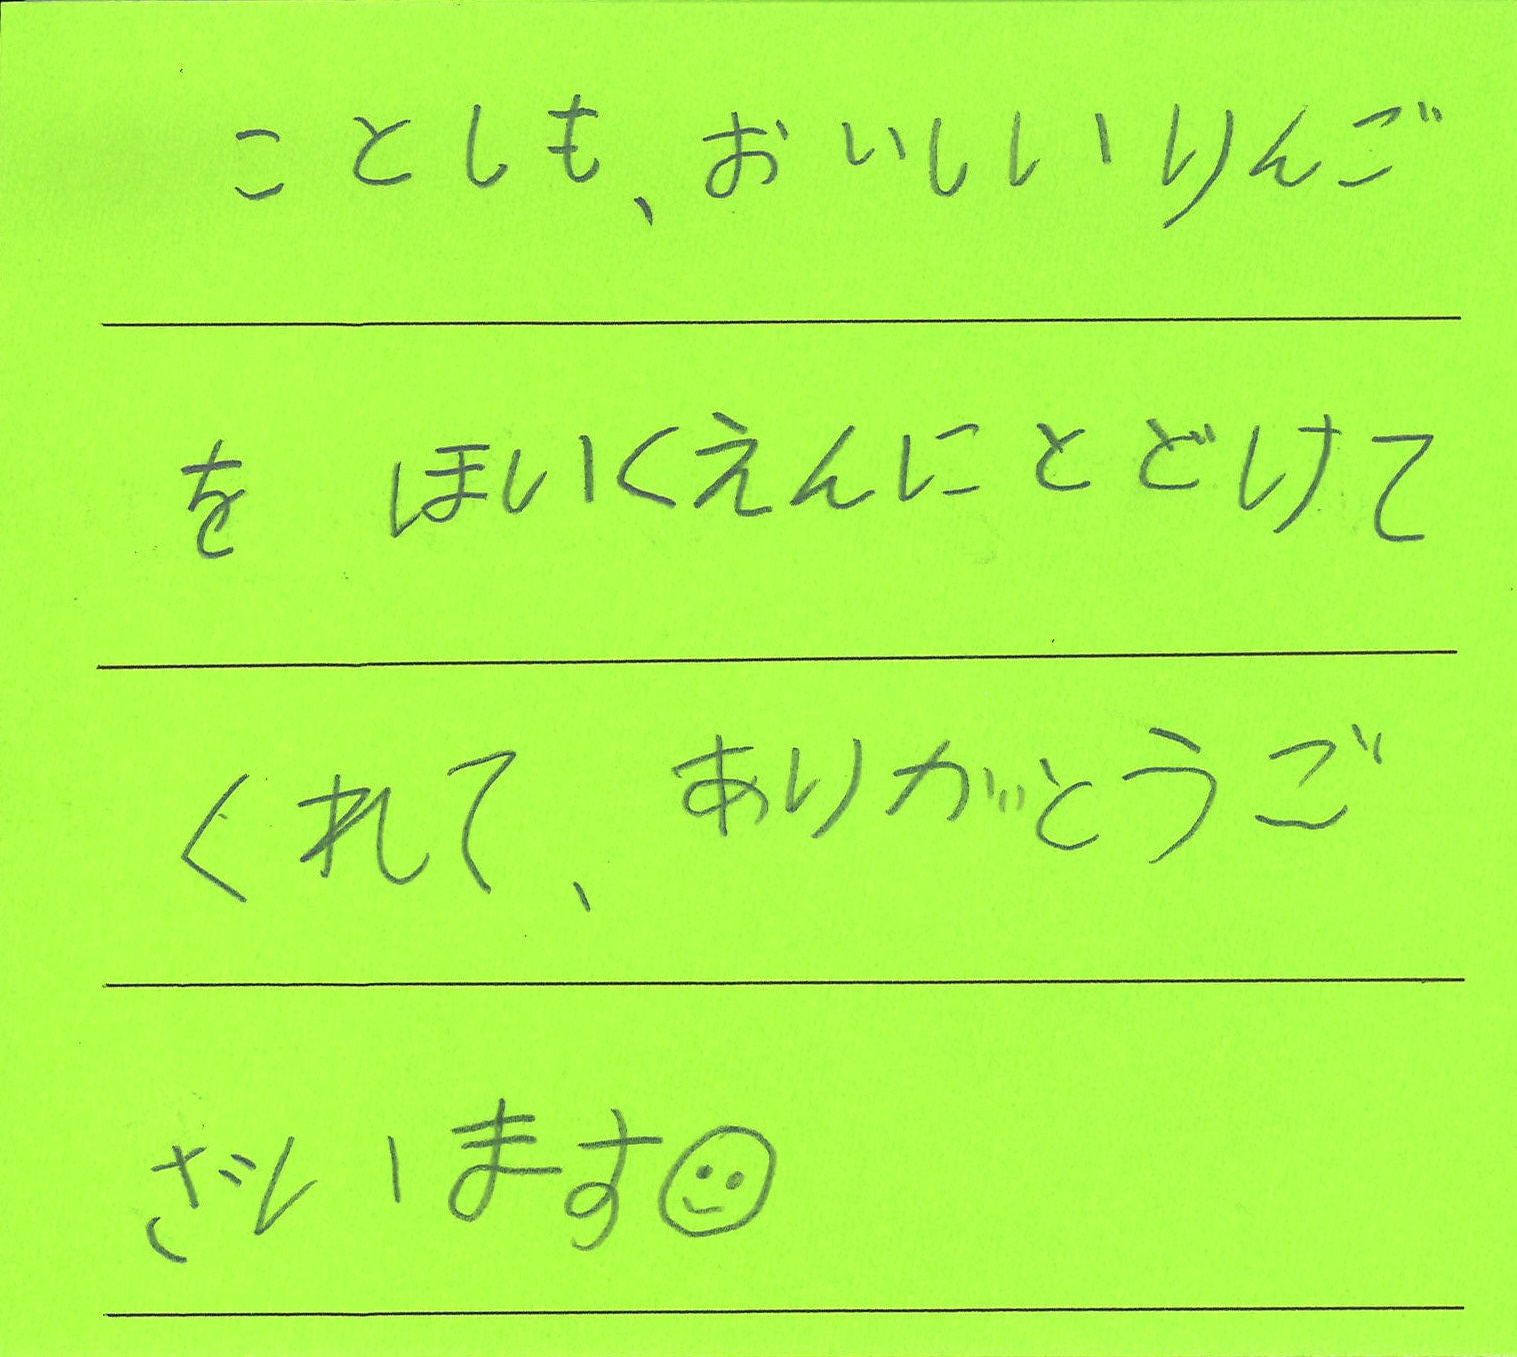 ことしも、おいしいりんご
を ほいくえんにとどけて
くれて、ありがとうご
ざいます☺